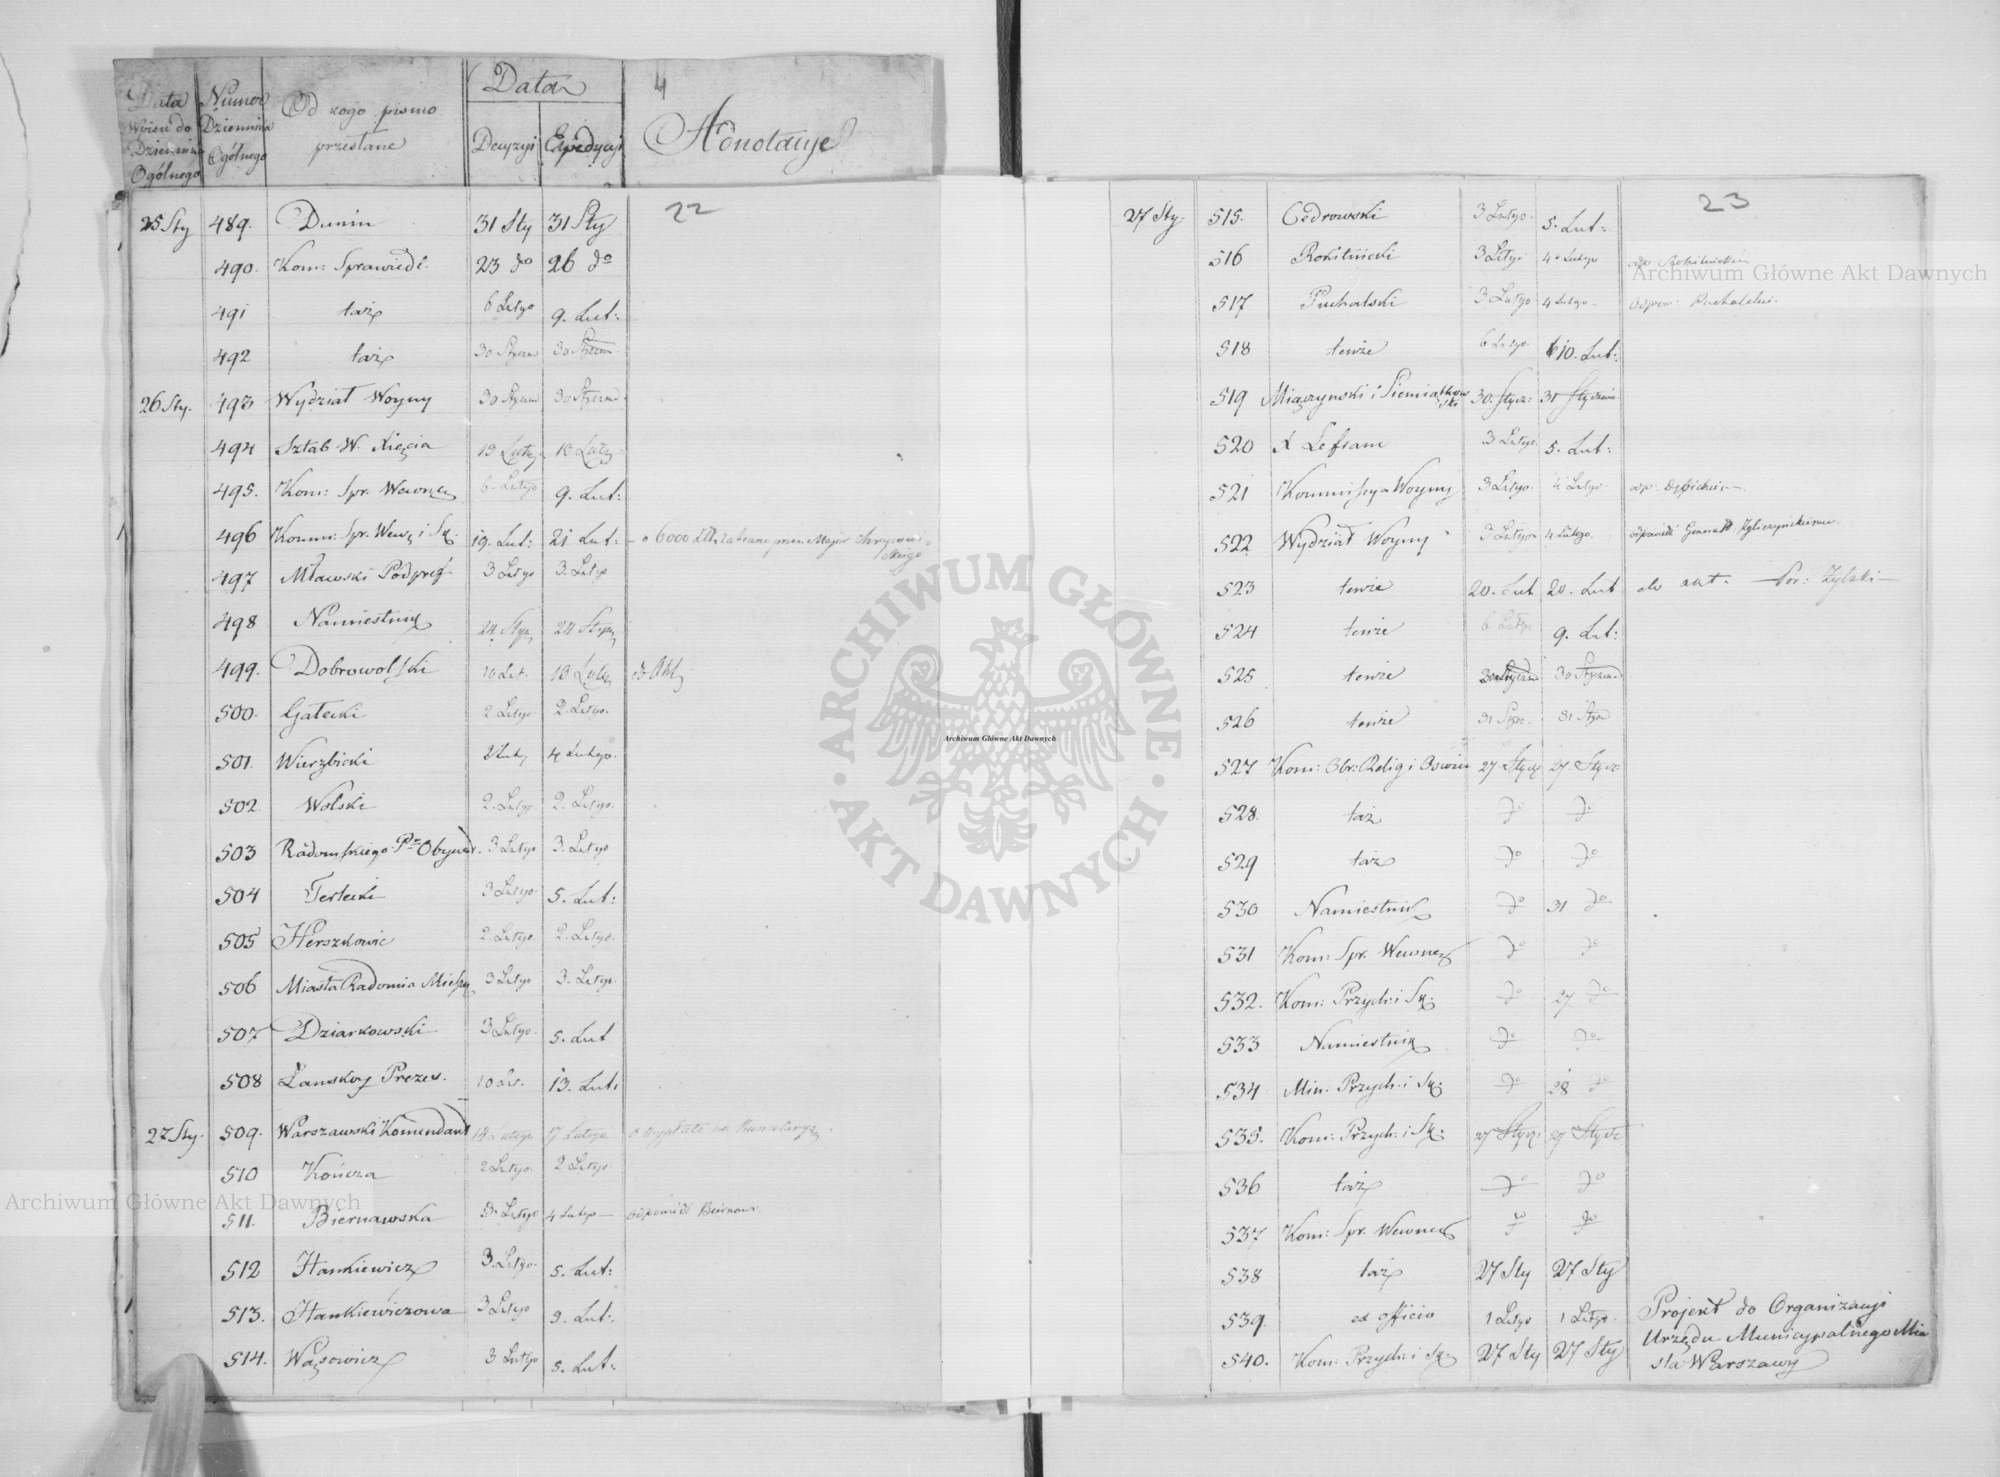 Data Wpisu do Dziennika Ogólnego | Numer Dziennika Ogólnego | Od kogo pismo przesłane | Data Decyzyi | Expedycyi | Adnotacye
4
22
25 Sty 489. Dunin 31 Sty 31 Sty
490. Kom: Sprawiedl. 23 do 26 do
491 taż 6 Lutgo 9. Lut:
492 taż 30 Stycz 30 Stycz
26 Sty. 493 Wydział Woyny 30 Stycz 30 Stycz
494 Sztab W. Xięcia 13 Lut 13 Lut
495. Kom: Spr. Wewnę 6 Lutgo 9. Lut:
496 Komm: Spr. Wewę i Sk: 19. Lut: 21 Lut: o 6000 Złt. zabrane przez Majr
497 Mławski Podpref. 3 Lutgo 3. Lutgo
498 Namiestnik 24 Stycz 24 Stycz
499. Dobrowolski 10 Lut. 13 Lut do Akt
500. Gałecki 2 Lutgo 2. Lutgo.
501. Wierzbicki 2 Lut 4 Lutego.
502. Wolski 2. Lutgo 2. Lutgo.
503 Radomskiego Ptu Obywat. 3 Lutgo 3. Lutgo
504 Terlecki 3 Lutgo. 5. Lut:
505 Herszkowic 2 Lutgo 2. Lutgo.
506 Miasta Radomia Mieszcz 3 Lutgo 3. Lutgo.
507 Dziarkowski 3 Lutgo. 5. Lut
508 Łanskoy Prezes. 10 Lut. 13. Lut:
27 Sty. 509. Warszawski Komendant 14 Lutego 17 Lutego o wypłatę na Kancelaryą
510 Kończa 2 Lutgo. 2 Lutgo.
511. Biernawska 3 Lutgo 4 Lutgo odpowiedź Biernaw.
512 Hankiewicz 3. Lutgo. 5. Lut:
513. Hankiewiczowa 3 Lutgo 5. Lut:
514. Wąsowicz 3 Lutgo 5. Lut:
23
27 Sty. 515. Cedrowski 3 Lutgo. 5. Lut:
516 Rokitnicki 3 Lutgo 4 Lutgo odp. Rokitnickiu
517 Puchalski 3 Lutgo 4 Lutgo odpow. Puchalski.
518 tenże 6 Lutgo. 10. Lut:
519 Miączynski i Siemiątkowski 30. Stycz: 31 Stycznia
520 X Lefsam 3 Lutgo. 5. Lut:
521 Kommissya Woyny 3 Lutgo. 4 Lutgo odp.
522 Wydział Woyny 3 Lutgo 4 Lutego. odpowiedź Generał
523 tenże 20. Lut 20. Lut do akt.
524 tenże 6 Lutgo 9. Lut:
525 tenże 30 Stycz 30 Stycz
526 tenże 31 Stycz. 31 Stycz
527 Kom: Obr: Relig i Oswie 27 Stycz 27 Stycz:
528. taż do do
529 taż do do
530 Namiestnik do 31 do
531 Kom: Spr. Wewnęz do do
532. Kom: Przych: i Sk: do 27 do
533 Namiestnik do do
534 Min: Przych: i Sk: do 28 do
535. Kom: Przych: i Sk: 27 Stycz: 27 Stycz
536 taż do do
537 Kom: Spr. Wewnęz do do
538 taż 27 Sty 27 Sty
539. ex officio 1 Lutgo 1 Lutgo. Projekt do Organizacyi
Urzędu Municypalnego Mia
sta Warszawy
540. Kom: Przych: i Sk: 27 Sty 27 Sty
Archiwum Główne Akt Dawnych
Archiwum Główne Akt Dawnych
Archiwum Główne Akt Dawnych
ARCHIWUM GŁÓWNE · AKT DAWNYCH ·